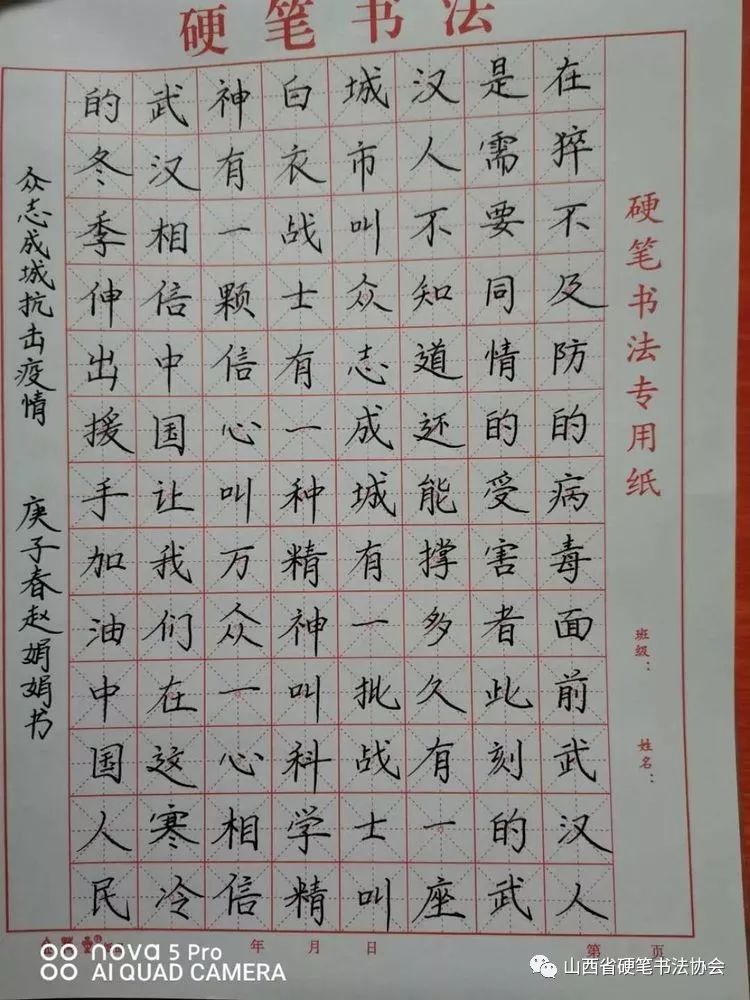 硬笔书法
硬笔书法专用纸
班级：
姓名：
在猝不及防的病毒面前武汉人
是需要同情的受害者此刻的武
汉人不知道还能撑多久有一座
城市叫众志成城有一批战士叫
白衣战士有一种精神叫科学精
神有一颗信心叫万众一心相信
武汉相信中国让我们在这寒冷
的冬季伸出援手加油中国人民
众志成城抗击疫情 庚子春赵娟娟书
年 月 日
第 页
nova 5 Pro
AI QUAD CAMERA
山西省硬笔书法协会